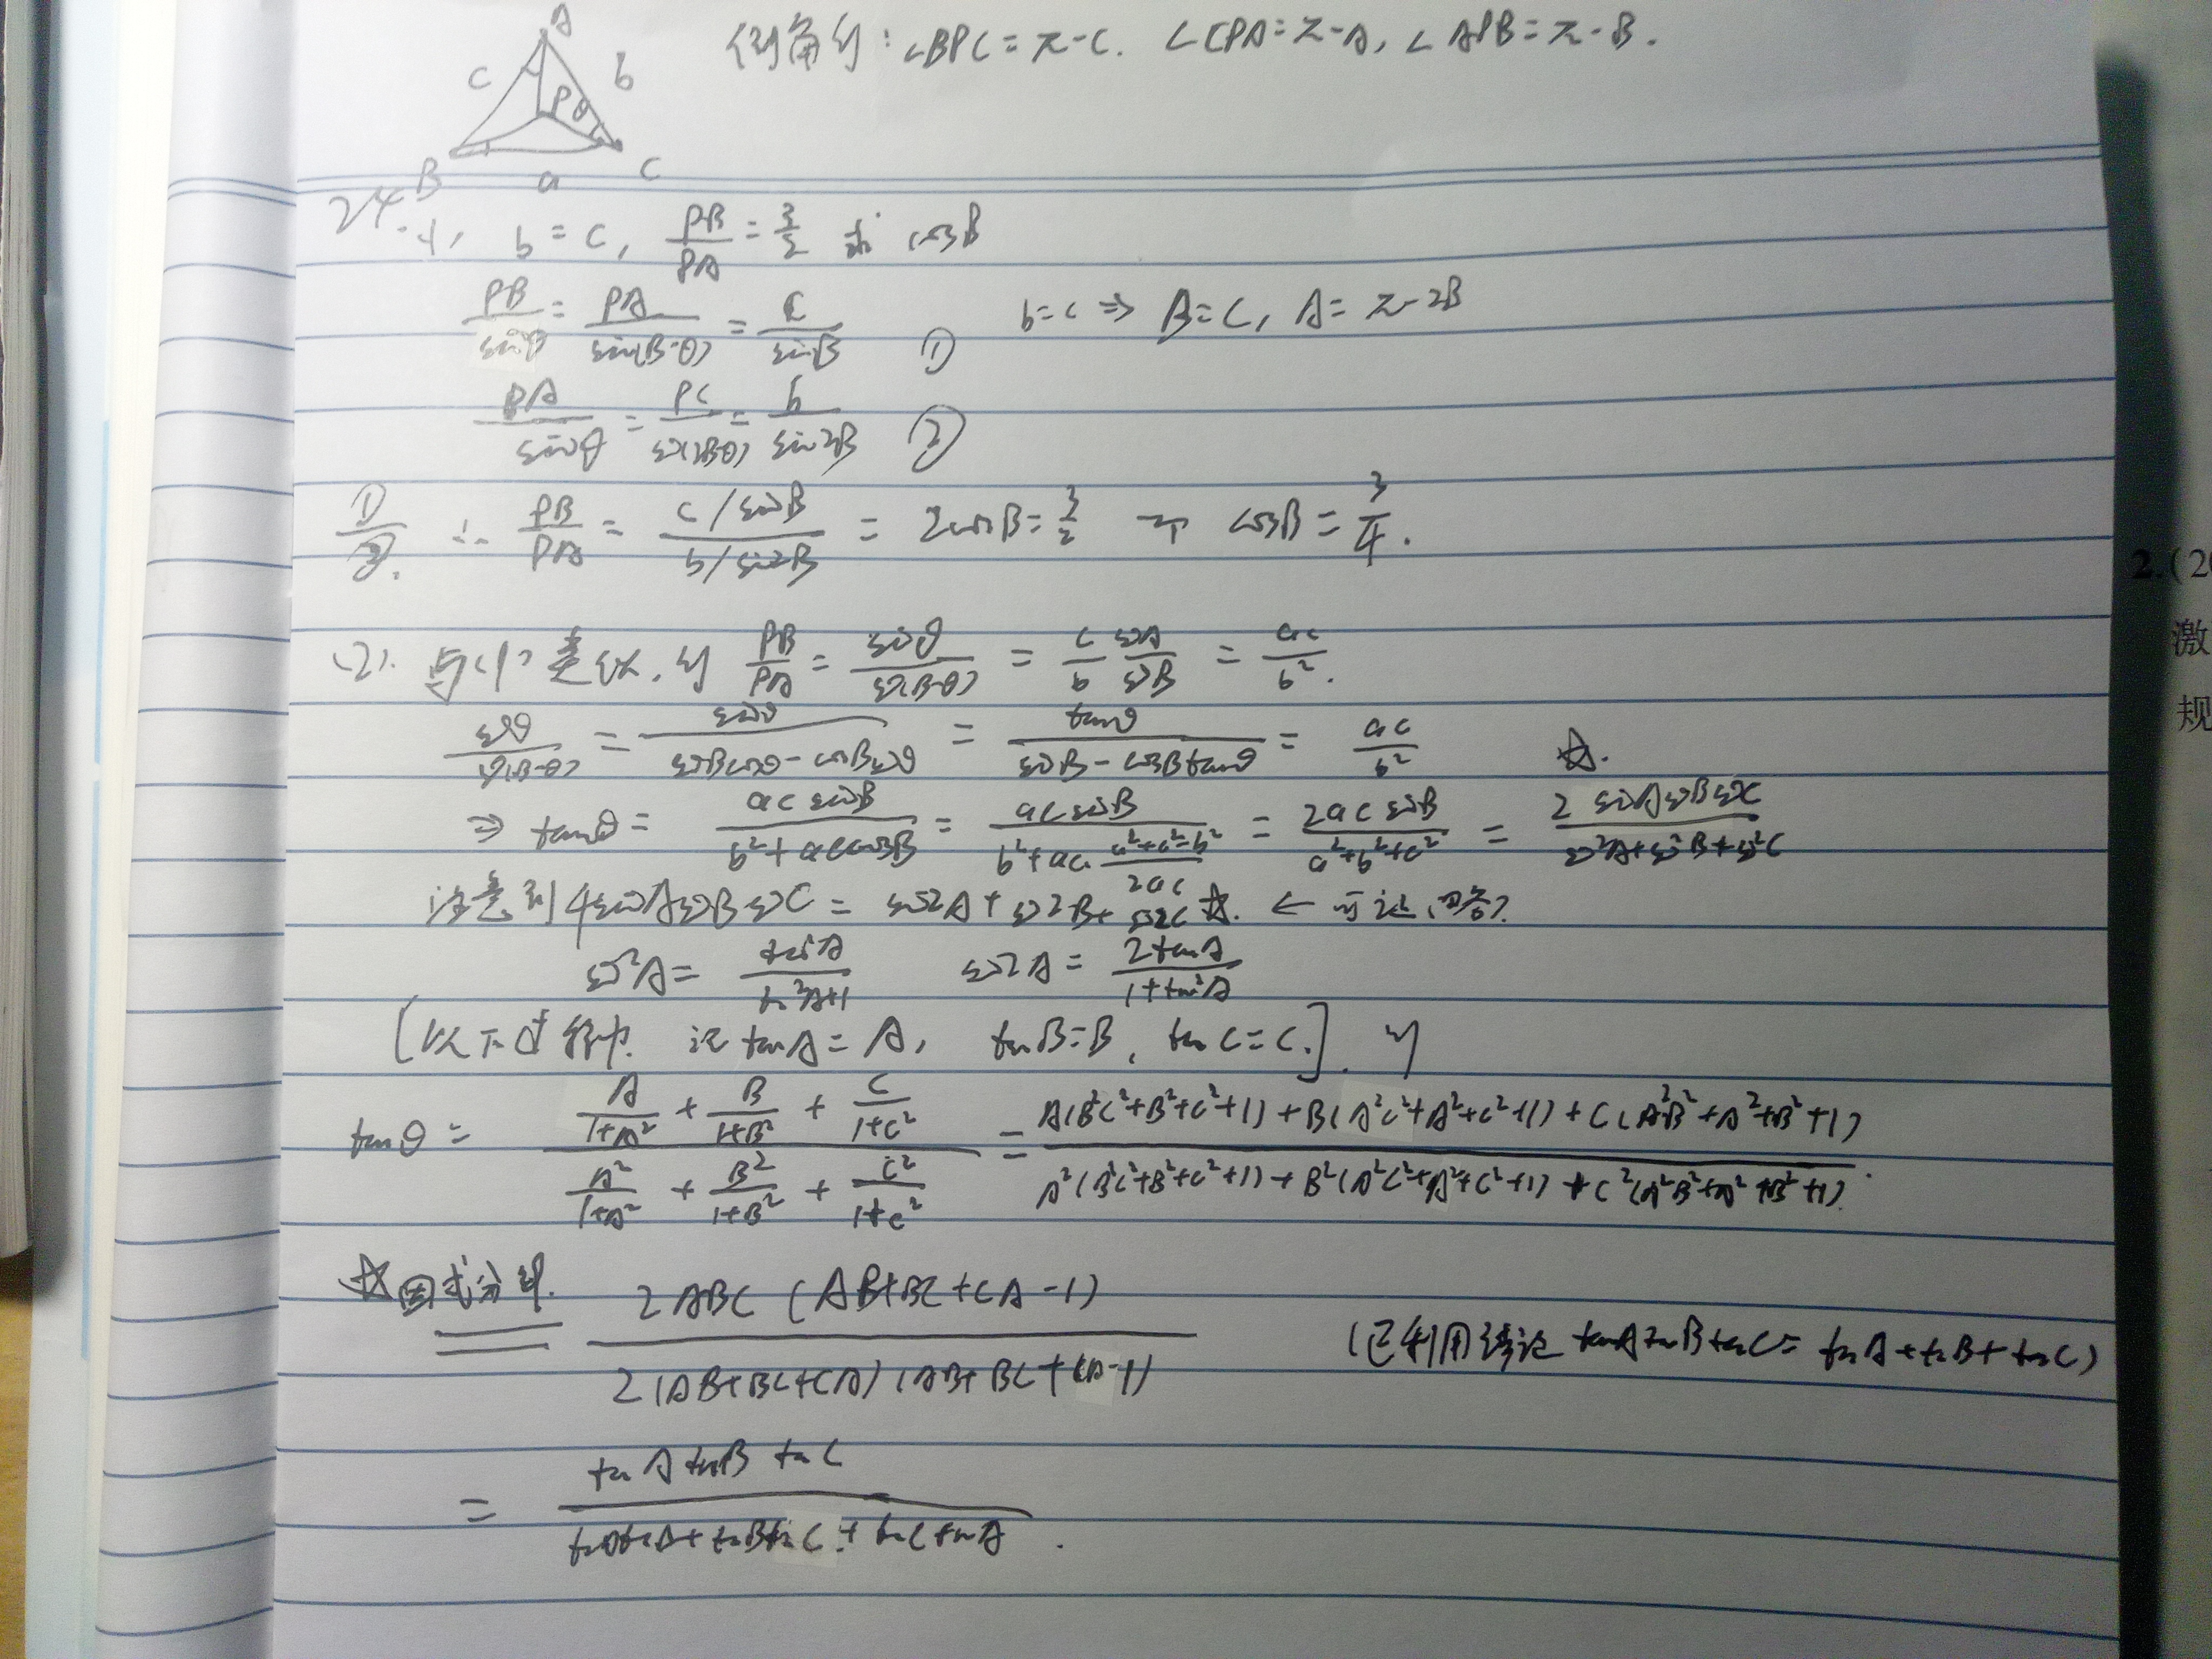 A
c b
Pθ
B a C
倒角得: ∠BPC=π-C. ∠CPA=π-A, ∠APB=π-B.
24. (1), b=c, PB/PA=3/2 求 cosB
PB/sinθ = PA/sin(B-θ) = c/sinB ① b=c ⇒ B=C, A=π-2B
PA/sinθ = PC/sin(2B-θ) = b/sin2B ②
①/②. ∴ PB/PA = (c/sinB)/(b/sin2B) = 2cosB=3/2 ⇒ cosB=3/4.
(2). 与(1)类似, 得 PB/PA = sinθ/sin(B-θ) = c/b sinA/sinB = ac/b².
sinθ/sin(B-θ) = sinθ/(sinBcosθ-cosBsinθ) = tanθ/(sinB-cosBtanθ) = ac/b² ☆.
⇒ tanθ = acsinB/(b²+accosB) = acsinB/(b²+ac·(a²+c²-b²)/2ac) = 2acsinB/(a²+b²+c²) = 2sinAsinBsinC/(sin²A+sin²B+sin²C)
注意到4sinAsinBsinC = sin2A+sin2B+sin2C ☆. ←
sin²A = tan²A/(tan²A+1) sin2A = 2tanA/(1+tan²A)
[以下过程中, 记tanA=A, tanB=B, tanC=C.]. 则
tanθ = (A/(1+A²) + B/(1+B²) + C/(1+C²))/(A²/(1+A²) + B²/(1+B²) + C²/(1+C²)) = (A(B²C²+B²+C²+1)+B(A²C²+A²+C²+1)+C(A²B²+A²+B²+1))/(A²(B²C²+B²+C²+1)+B²(A²C²+A²+C²+1)+C²(A²B²+A²+B²+1)).
☆因式分解. = 2ABC(AB+BC+CA-1)/(2(AB+BC+CA)(AB+BC+CA-1)) (已利用结论 tanAtanBtanC=tanA+tanB+tanC)
= tanAtanBtanC/(tanAtanB+tanBtanC+tanCtanA).
2.(20
激
规